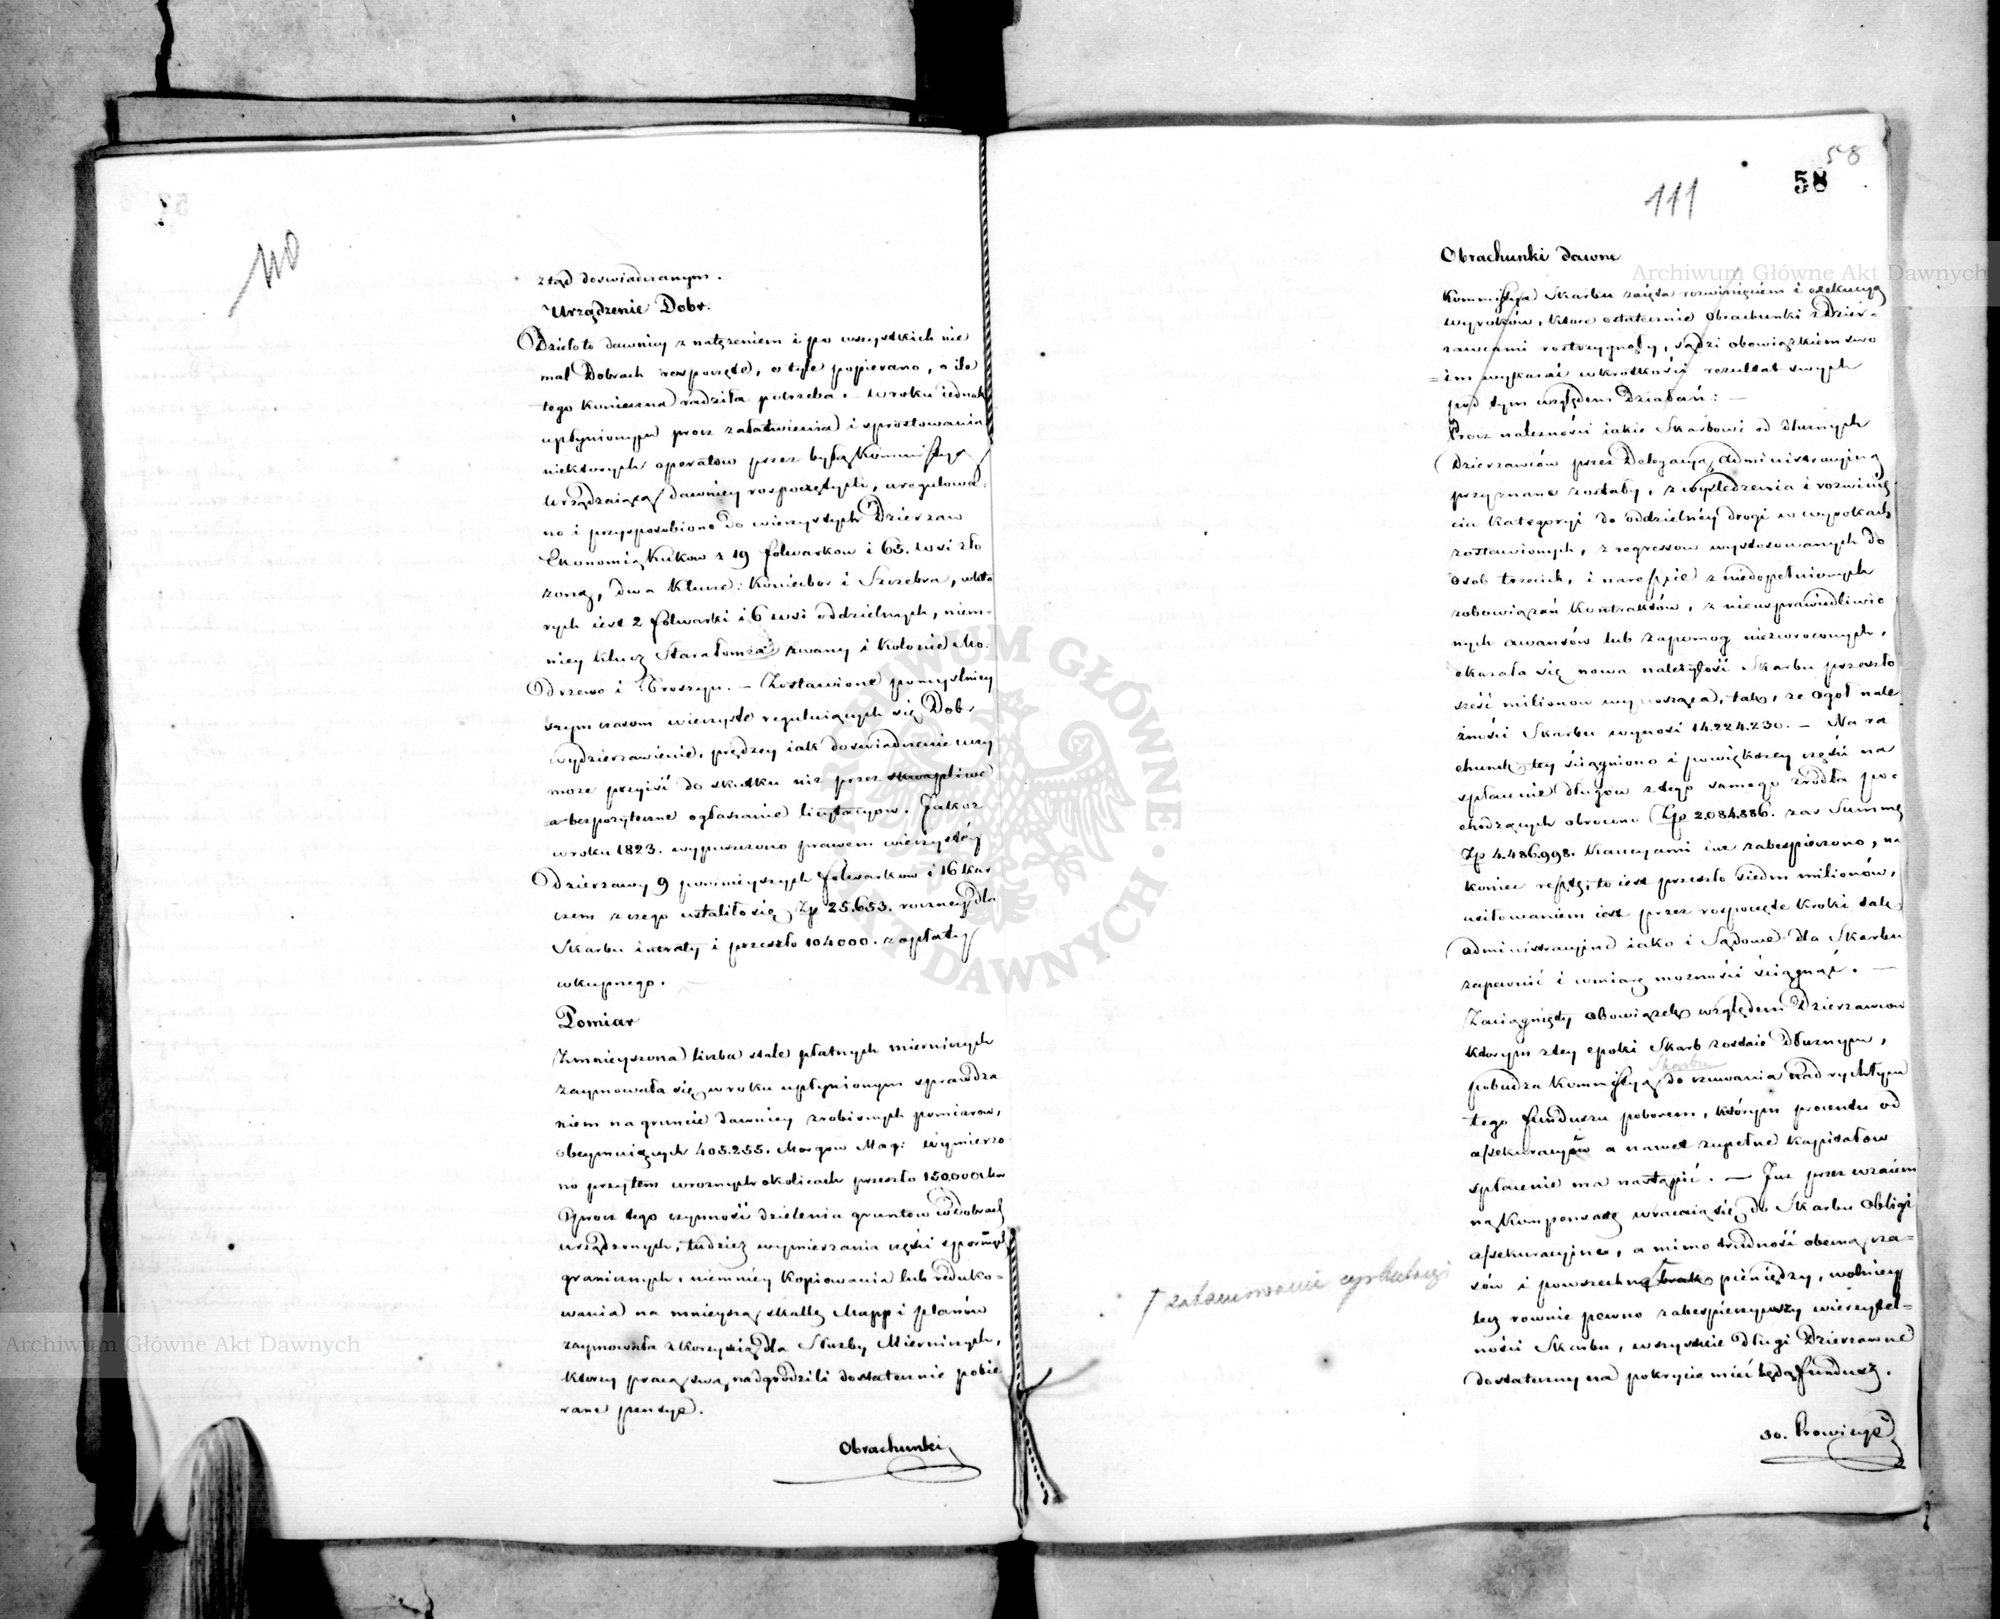 110
ztąd doswiadczanym.
Urządzenie Dobr.
Dzieło to dawniey z natężeniem i po wszystkich nie
mal Dobrach rospoczęte, o tyle popierano, o ile
tego konieczna radziła potrzeba. — W roku iednak
upłynionym procz załatwienia i sprostowania
niektorych operatow przez byłą Kommissyą
Urządzaiącą dawniey rospoczętych, uregulowa-
no i przysposobiono do wieczystych Dzierzaw
Ekonomią Kukow z 19 folwarkow i 65. wsi zło
zoną, dwa Klucze: Koniecbor i Szczebra, w kto
rych iest 2 folwarki i 6 wsi oddzielnych, niem-
niey klucz Starałomża zwany i kolonie Mo-
drzewo i Troszyn. — Zostawione pomyslniey
szym czasom wieczyste reguluiących się Dobr
wydzierzawienie, prędzey iak doswiadczenie uczy
moze przyiść do skutku niz przez skwapliwe
a bezpozyteczne ogłaszanie licytacyow. Jakoz
w roku 1823. wypuszczono prawem wieczystéy
dzierzawy 9 pomnieyszych folwarkow i 16 kar
czem z czego ustaliło się Zp 25.653. roczney dla
Skarbu intraty i przeszło 104000. zapłaty
wkupnego.
Pomiar
Zmnieyszona liczba stale płatnych mierniczych
zaymowała się w roku upłynionym sprawdza
niem na gruncie dawniey zrobionych pomiarow,
obeymuiących 405.255. Morgow Mag: Wymierzo
no przytem w roznych okolicach przeszło 150.000
Oprocz tego czynność dzielenia gruntow w dobrach
urządzonych, tudziez wymierzania części spornych
granicznych, niemniéy kopiowania lub reduko-
wania na mnieyszą skallę Mapp i planów
zaymowała z korzyścią dla Służby Mierniczych,
ktorzy pracą swą nadgrodzili dostatecznie pobie
rane pensye.
Obrachunki
58
58
111
Obrachunki dawne
Kommissya Skarbu zaięta rozwinięciem i exekucyą
wyroków, ktore ostatecznie obrachunki z Dzier-
zawcami rostrzygnęły, sądzi obowiązkiem swo
im wykazać w krótkości rezultat swych
pod tym względem Działań: —
Procz naleznosci iakie Skarbowi od dłuznych
Dzierzawców przez Delegacyą Administracyiną
przyznane zostały, z wysledzenia i rozwinię
cia kategoryi do oddzielnéy drogi w wyrokach
zostawionych, z regressow wystosowanych do
osob trzecich, i nareszcie z niedopełnionych
zobowiązań kontraktów, z nieusprawiedliwio
nych awansów lub zapomog niezwroconych,
okazała się nowa należytość Skarbu przeszło
sześć milionow wynosząca, tak, ze ogoł nale
żności Skarbu wynosi 14.224.230. — Na ra
chunek tey ściągniono i powiększey części na
spłacenie długow z tego samego zrodła po-
chodzących obrocono Zp 2.084.886. zas Summę
Zp 4.486.998. Kaucyami iuz zabespieczono, na
koniec resztę, to iest przeszło siedm milionów,
usiłowaniem iest przez rospoczęte kroki tak
administracyjne iako i Sądowe dla Skarbu
zapewnić i w miarę mozności ściągnąć. —
Zaciągnięty obowiązek względem Dzierzawcow
ktorym z tey epoki Skarb zostaie dłuznym,
Skarbu
pobudza Kommissyą do czuwania nad rychłym
tego funduszu poborem, którym procentu od
assekuracyów a nawet zupełne kapitałow
spłacenie ma nastąpić. — Juz przez wzaiem
ną kompensatę wracaią się do Skarbu obligi
assekuracyjne, a mimo trudność obecną cza-
sów i powszechny brak pieniędzy, wolniey
lecz rownie pewno zabespieczywszy wierzytel-
ności Skarbu, wszystkie długi Dzierzawne
dostateczny na pokrycie mieć będą fundusz.
† zatamowanie cyrkulacyi
30. Prowizye
Archiwum Główne Akt Dawnych
Archiwum Główne Akt Dawnych
ARCHIWUM GŁÓWNE · AKT DAWNYCH ·